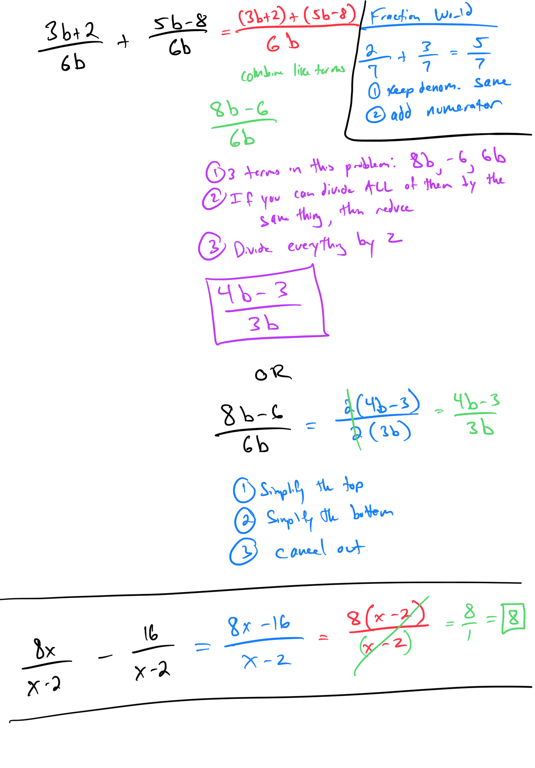 (3b+2)/(6b) + (5b-8)/(6b) = ((3b+2)+(5b-8))/(6b)
combine like terms
(8b-6)/(6b)
Fraction World
2/7 + 3/7 = 5/7
① keep denom. same
② add numerator
① 3 terms in this problem: 8b, -6, 6b
② If you can divide ALL of them by the
same thing, then reduce
③ Divide everything by 2
(4b-3)/(3b)
OR
(8b-6)/(6b) = (2(4b-3))/(2(3b)) = (4b-3)/(3b)
① Simplify the top
② Simplify the bottom
③ cancel out
(8x)/(x-2) - (16)/(x-2) = (8x-16)/(x-2) = (8(x-2))/((x-2)) = 8/1 = 8